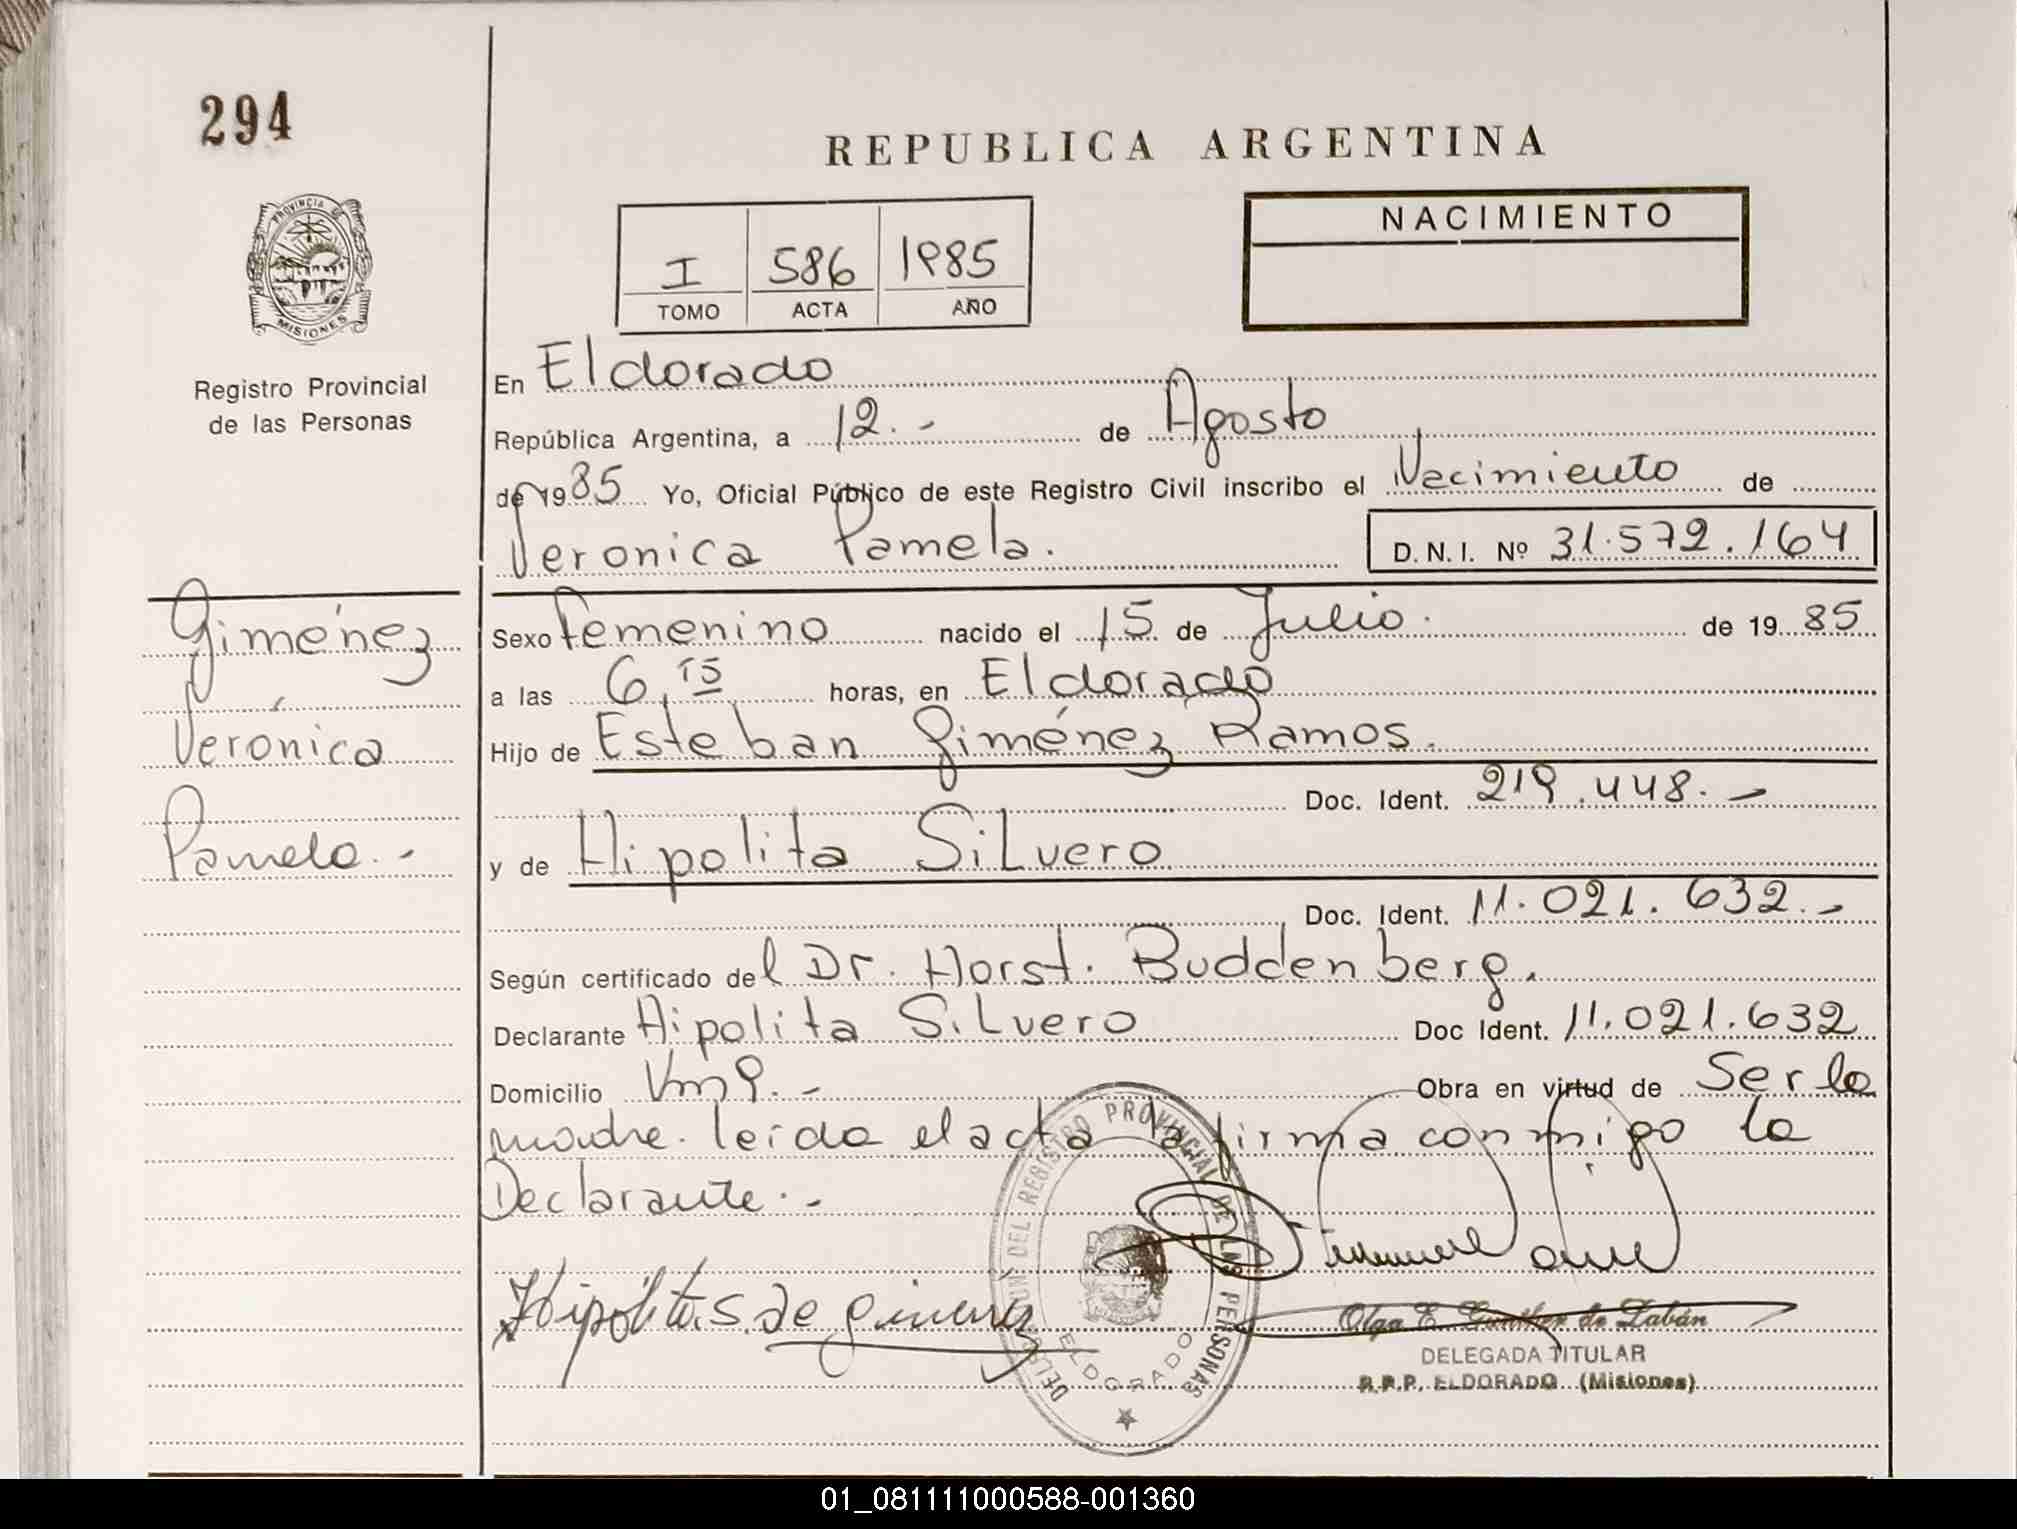 294
REPUBLICA ARGENTINA
PROVINCIA DE
MISIONES
Registro Provincial
de las Personas
I 586 1985
TOMO ACTA AÑO
NACIMIENTO
En Eldorado
República Argentina, a 12.- de Agosto
de 1985 Yo, Oficial Público de este Registro Civil inscribo el Nacimiento de
Veronica Pamela.
D.N.I. Nº 31.572.164
Giménez
Verónica
Pamela.-
Sexo Femenino nacido el 15 de Julio. de 1985
a las 6,15 horas, en Eldorado
Hijo de Esteban Giménez Ramos.
Doc. Ident. 219.448.-
y de Hipolita Silvero
Doc. Ident. 11.021.632.-
Según certificado del Dr. Horst. Buddenberg.
Declarante Hipolita Silvero Doc Ident. 11.021.632
Domicilio Obra en virtud de Ser la
madre. leida el acta la firma conmigo la
Declarante.-
Hipólita S. de Gimenez
DEL REGISTRO PROVINCIAL DE LAS PERSONAS
ELDORADO
Olga E. Gunther de Labán
DELEGADA TITULAR
R.P.P. ELDORADO (Misiones)
01_081111000588-001360